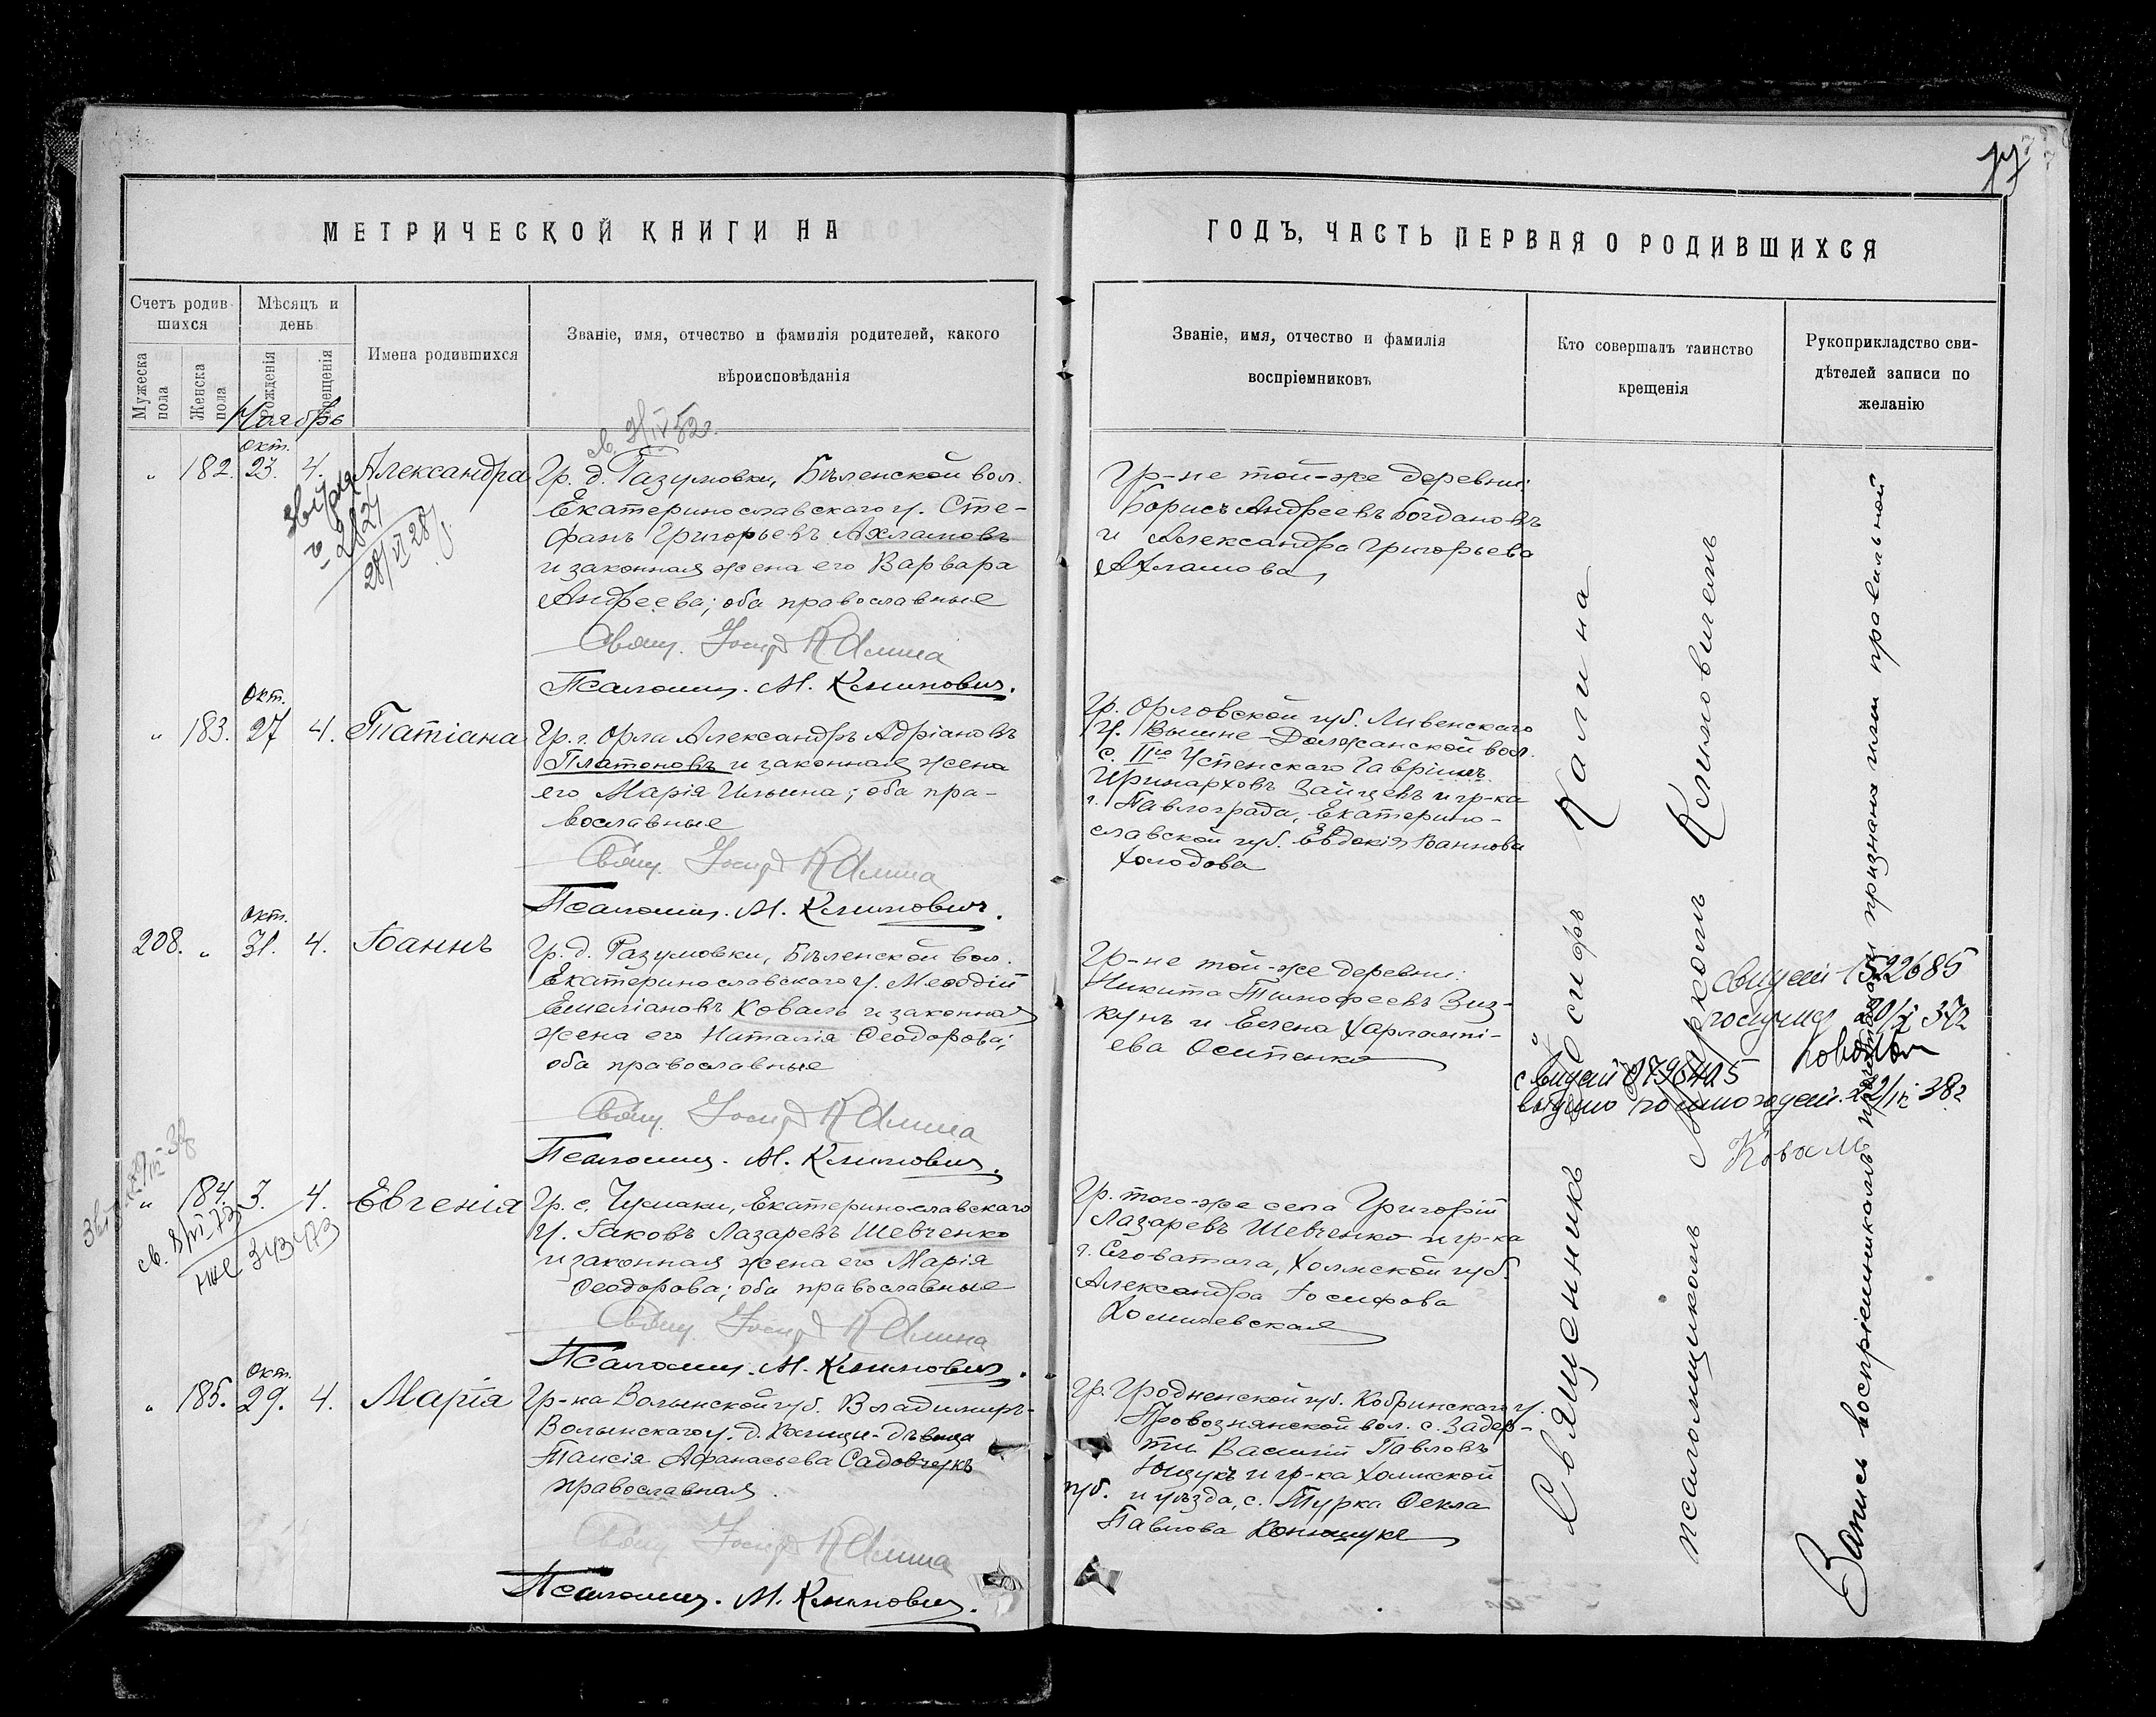 17
МЕТРИЧЕСКОЙ КНИГИ НА
ГОДЪ, ЧАСТЬ ПЕРВАЯ О РОДИВШИХСЯ
Счетъ родив-
шихся
Мужеска
пола
Женска
пола
Мѣсяцъ и
день
Рожденія
Крещенія
Имена родившихся
Званіе, имя, отчество и фамилія родителей, какого
вѣроисповѣданія
Званіе, имя, отчество и фамилія
воспріемниковъ
Кто совершалъ таинство
крещенія
Рукоприкладство сви-
дѣтелей записи по
желанію
Ноябрь
Окт.
" 182. 23. 4. Александра
Гр. д. Разумовки, Бѣленской вол.
Екатеринославскаго у. Сте-
фанъ Григорьевъ Ахламовъ
и законная жена его Варвара
Андреева; оба православные
Свящ. Іосиф Калина
Псаломщ. М. Климович.
Гр-не той-же деревни:
Борисъ Андреевъ Богдановъ
и Александра Григорьева
Ахламова
28/VI 28
Окт.
" 183. 27 4. Татіана
Гр. г. Орла Александръ Адріановъ
Платоновъ и законная жена
его Марія Ильина; оба пра-
вославные
Свящ. Іосиф Калина
Псаломщ. М. Климович.
Гр. Орловской губ. Ливенскаго
у. Вышне-Должанской вол.
с. IIго Успенскаго Гавріилъ
Иринарховъ Зайцевъ и гр-ка
г. Павлограда, Екатерино-
славской губ. Евдокія Іоаннова
Холодова
Окт.
208. " 31. 4. Іоаннъ
Гр. д. Разумовки, Бѣленской вол.
Екатеринославскаго у. Меѳодій
Емеліановъ Коваль и законная
жена его Наталія Ѳеодорова;
оба православные
Свящ. Іосиф Калина
Псаломщ. М. Климович.
Гр-не той-же деревни:
Никита Тимофеевъ Виз-
кунъ и Елена Харлампі-
ева Осипенко
" 184. 3. 4. Евгенія
Гр. с. Чумаки, Екатеринославскаго
у. Іаковъ Лазаревъ Шевченко
и законная жена его Марія
Ѳеодорова; оба православные
Свящ. Іосиф Калина
Псаломщ. М. Климович.
Гр. того-же села Григорій
Лазаревъ Шевченко и гр-ка
г. Словатага, Холмской губ.
Александра Іосифова
343473
Окт.
" 185. 29. 4. Марія
Гр-ка Волынской губ. Владимиръ-
Волынскаго у. д. девица
Таисія Афанасьева Садовчукъ
православная.
Свящ. Іосиф Калина
Псаломщ. М. Климович.
Гр. Гродненской губ. Кобринскаго у.
вол. с. Задер-
ти Василій Павловъ
Ющукъ и гр-ка Холмской
губ. и уѣзда, с. Турка Ѳекла
Павлова
Священникъ Іосифъ Калина
псаломщикомъ Маркомъ Климовичемъ
Запись воспріемникамъ прочитана и признана ими правильной
1522685
Коваль